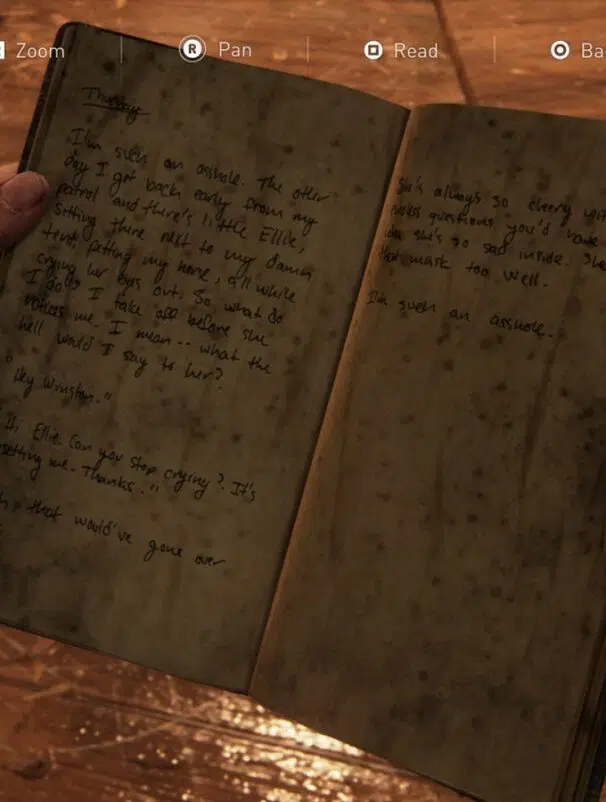 Zoom
R Pan
Read
Ba
Thursday
I'm such an asshole. The other
day I got back early from my
patrol and there's little Ellie,
sitting there next to my damn
tent petting my horse, all while
crying her eyes out. So what do
I do? I take off before she
notices me. I mean -- what the
hell would I say to her?
"Hey Winston."
Hi Ellie. Can you stop crying? It's
setting me. Thanks."
h, that would've gone over
She's always so cheery wit
questions you'd have
she's so sad inside. She
that mask too well.
I'm such an asshole.